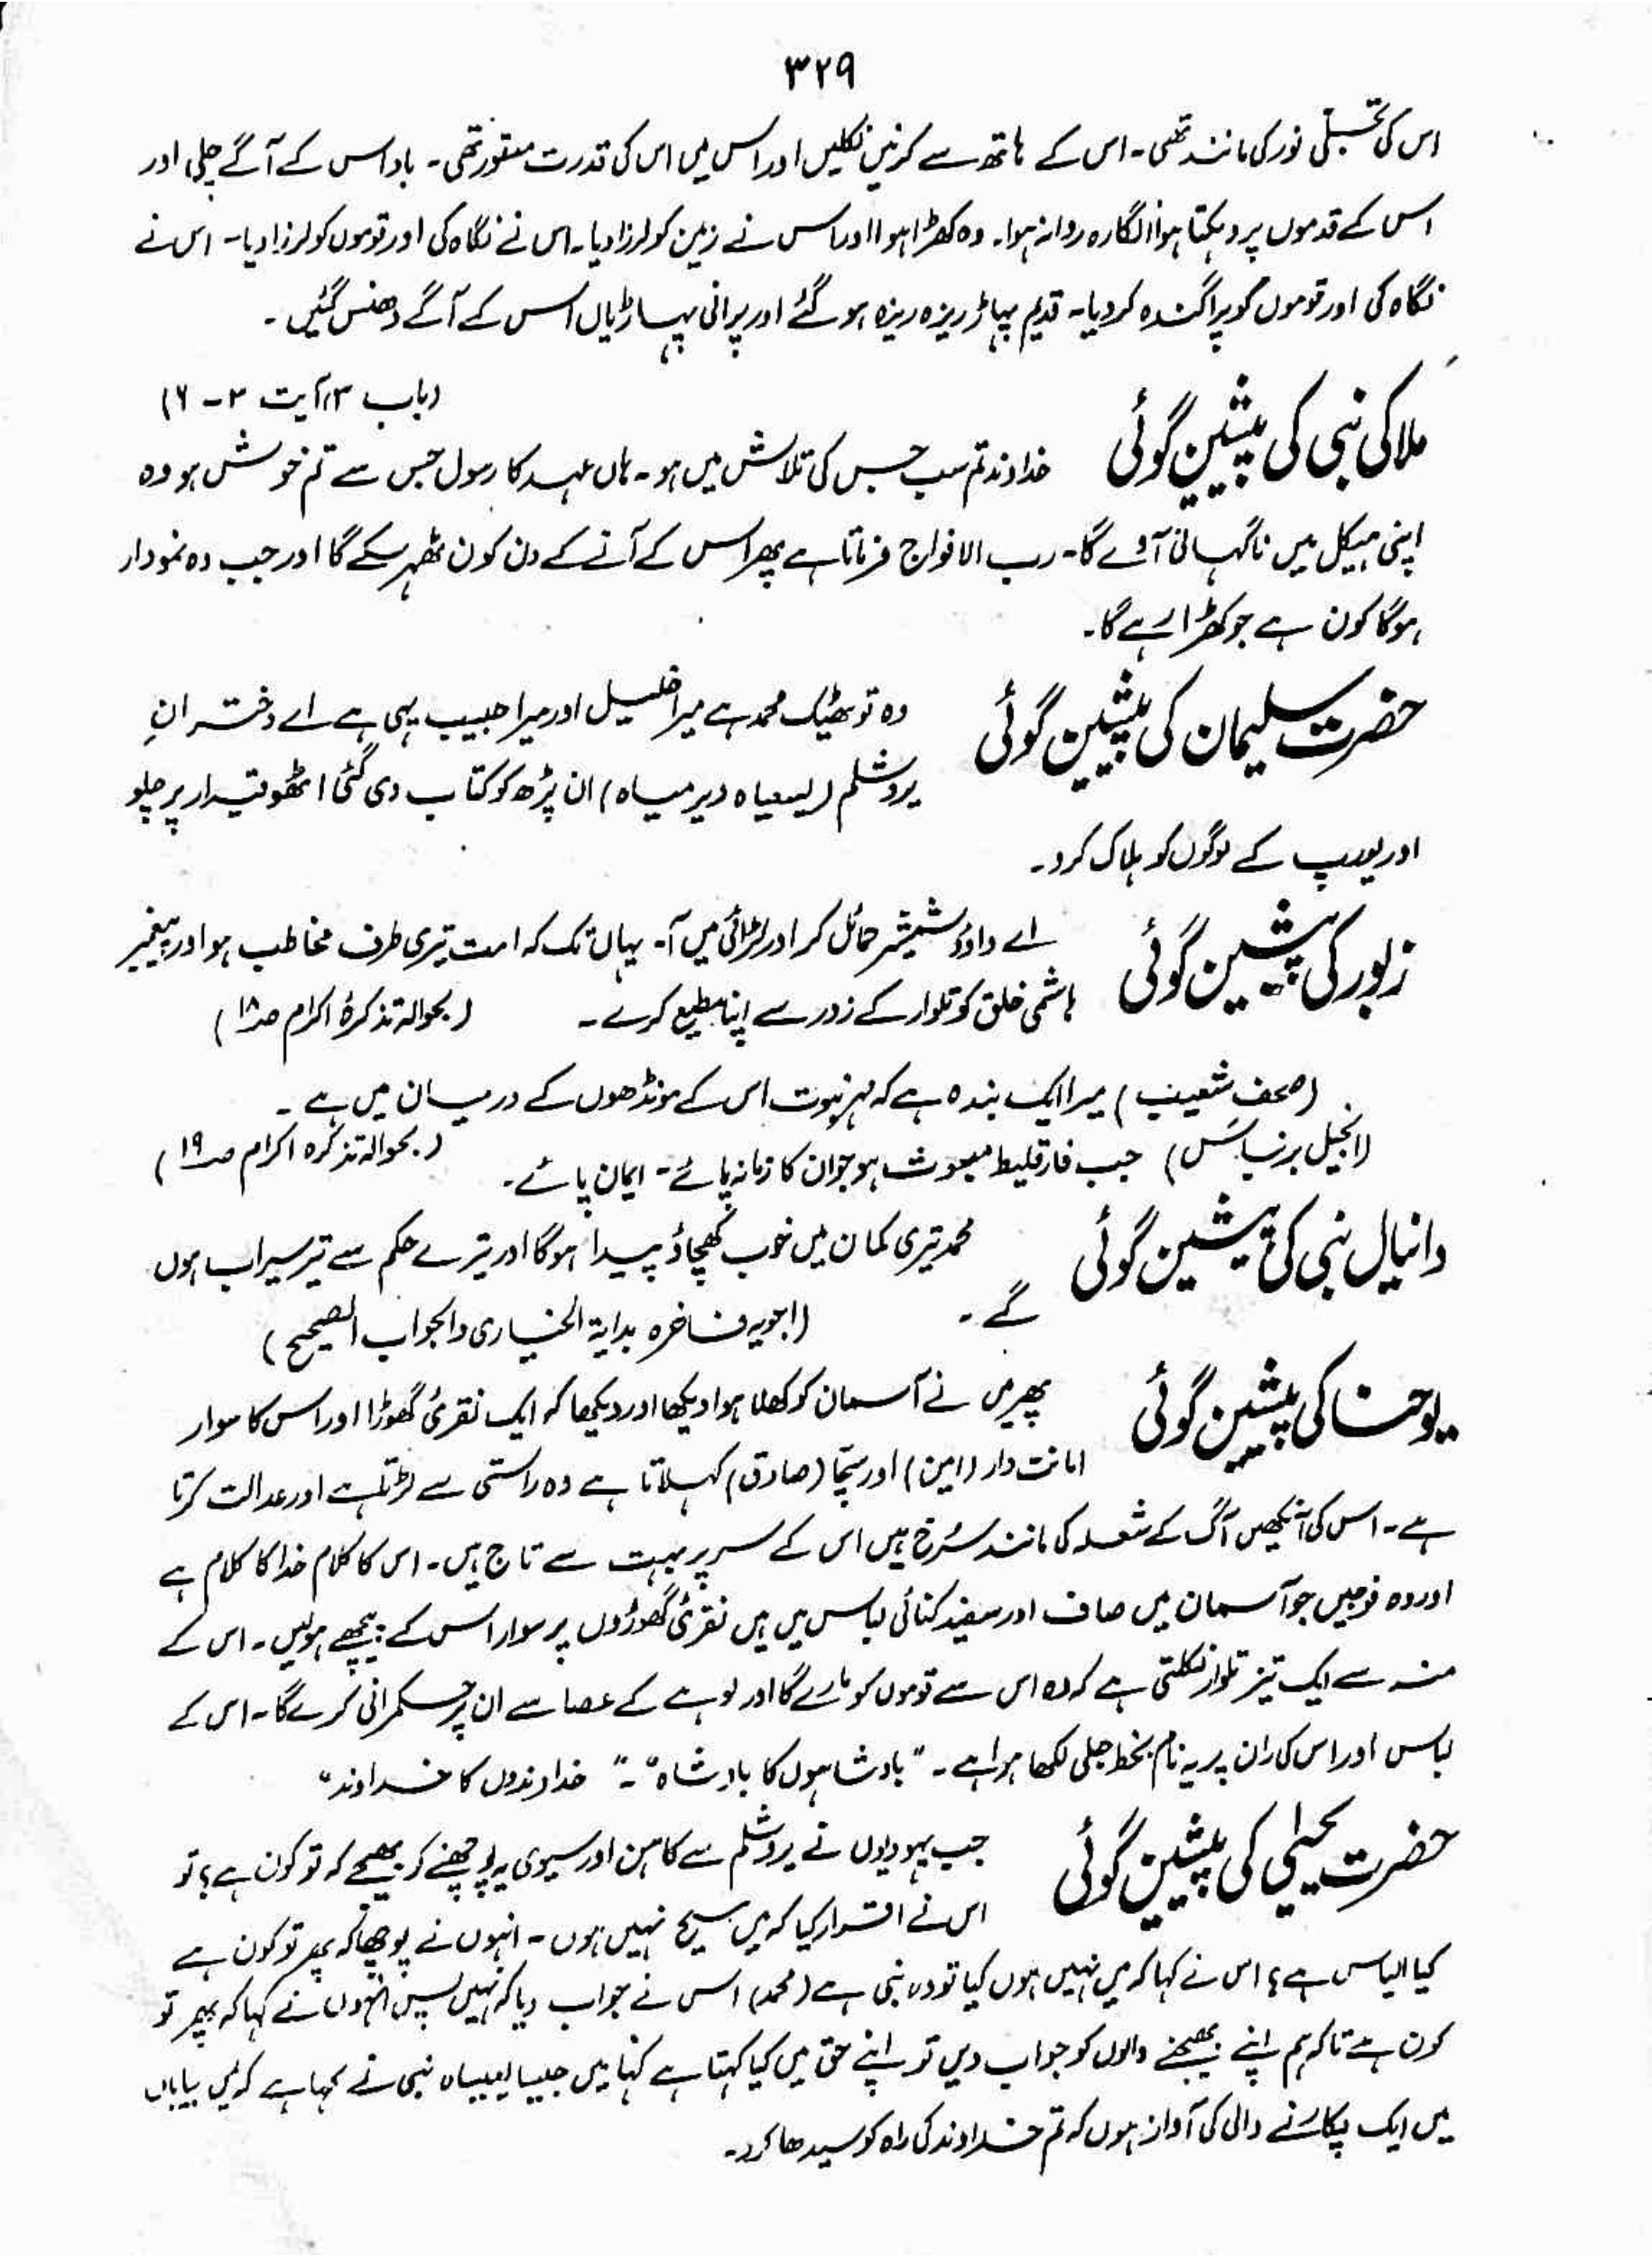 ۳۲۹
اس کی تجلّی نور کی مانند تھی۔ اس کے ہاتھ سے کرنیں نکلیں اور اس میں اس کی قدرت مستور تھی۔ باد اس کے آگے چلی اور
اس کے قدموں پر دہکتا ہوا انگارہ روانہ ہوا۔ وہ کھڑا ہوا اور اس نے زمین کو لرزا دیا۔ اس نے نگاہ کی اور قوموں کو لرزا دیا۔ اس نے
نگاہ کی اور قوموں کو پراگندہ کر دیا۔ قدیم پہاڑ ریزہ ریزہ ہو گئے اور پرانی پہاڑیاں اس کے آگے دھنس گئیں۔
(باب ۳، آیت ۳-۶)
ملاکی نبی کی پیشین گوئی
خداوند تم سب جس کی تلاش میں ہو۔ ہاں عہد کا رسول جس سے تم خوش ہو وہ
اپنی ہیکل میں ناگہانی آوے گا۔ رب الافواج فرماتا ہے پھر اس کے آنے کے دن کون ٹھہر سکے گا اور جب وہ نمودار
ہوگا کون ہے جو کھڑا رہے گا۔
حضرت سلیمان کی پیشین گوئی
وہ تو ٹھیک محمد ہے میرا خلیل اور میرا حبیب یہی ہے اے دخترانِ
یروشلم (یسعیاہ ویرمیاہ) ان پڑھ کو کتاب دی گئی اٹھو قیدار پر چلو
اور پورب کے لوگوں کو ہلاک کرو۔
زبور کی پیشین گوئی
اے داؤد شمشیر حمائل کر اور لڑائی میں آ۔ یہاں تک کہ امت تیری طرف مخاطب ہو اور پیغمبر
ہاشمی خلق کو تلوار کے زور سے اپنا مطیع کرے۔ (بحوالہ تذکرۂ اکرام صـ۱۸)
(صحف شعیب) میرا ایک بندہ ہے کہ مہر نبوت اس کے مونڈھوں کے درمیان میں ہے۔
(انجیل برنباس) جب فارقلیط مبعوث ہو جو ان کا زمانہ پائے۔ ایمان پائے۔ (بحوالہ تذکرہ اکرام صـ۱۹)
دانیال نبی کی پیشین گوئی
محمد تیری کمان میں خوب کھچاؤ پیدا ہوگا اور تیرے حکم سے تیر سیراب ہوں
گے۔ (اجوبہ فاخرہ ہدایۃ الحیاری والجواب الصحیح)
یوحنا کی پیشین گوئی
پھر میں نے آسمان کو کھلا ہوا دیکھا اور دیکھا کہ ایک نقرئی گھوڑا اور اس کا سوار
امانت دار (امین) اور سچّا (صادق) کہلاتا ہے وہ راستی سے لڑتا ہے اور عدالت کرتا
ہے۔ اس کی آنکھیں آگ کے شعلہ کی مانند سُرخ ہیں اس کے سر پر بہت سے تاج ہیں۔ اس کا کلام خدا کا کلام ہے
اور وہ فوجیں جو آسمان میں صاف اور سفید کتانی لباس میں ہیں نقرئی گھوڑوں پر سوار اس کے پیچھے ہولیں۔ اس کے
منہ سے ایک تیز تلوار نکلتی ہے کہ وہ اس سے قوموں کو مارے گا اور لوہے کے عصا سے ان پر حکمرانی کرے گا۔ اس کے
لباس اور اس کی ران پر یہ نام بخط جلی لکھا ہوا ہے۔ "بادشاہوں کا بادشاہ"۔ "خداوندوں کا خداوند"
حضرت یحییٰ کی پیشین گوئی
جب یہودیوں نے یروشلم سے کاہن اور لیوی یہ پوچھنے کو بھیجے کہ تو کون ہے؟ تو
اس نے اقرار کیا کہ میں مسیح نہیں ہوں۔ انہوں نے پوچھا کہ پھر تو کون ہے
کیا الیاس ہے؟ اس نے کہا کہ میں نہیں ہوں کیا تو وہ نبی ہے (محمد) اس نے جواب دیا کہ نہیں پس انہوں نے کہا کہ پھر تو
کون ہے تاکہ ہم اپنے بھیجنے والوں کو جواب دیں تو اپنے حق میں کیا کہتا ہے کہا میں جیسا یسعیاہ نبی نے کہا ہے کہ میں بیاباں
میں ایک پکارنے والی کی آواز ہوں کہ تم خداوند کی راہ کو سیدھا کرو۔